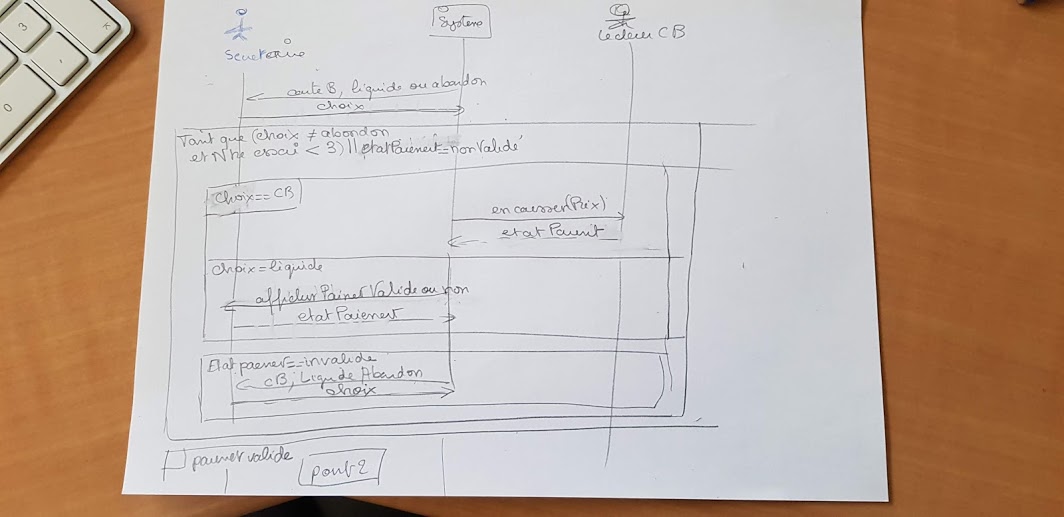 Système
Secretaire
Lecteur CB
carte B, liquide ou abandon
choix
Tant que (choix ≠ abandon
et Nbre essai < 3) || etatPaiement = non Validé
Choix == CB
encaisser(Prix)
etat Paient
choix = liquide
afficher Paimet Valide ou non
etatPaiement
Etat paement == invalide
CB, Liquide Abandon
choix
paiemet valide
pont 2
3
K
0